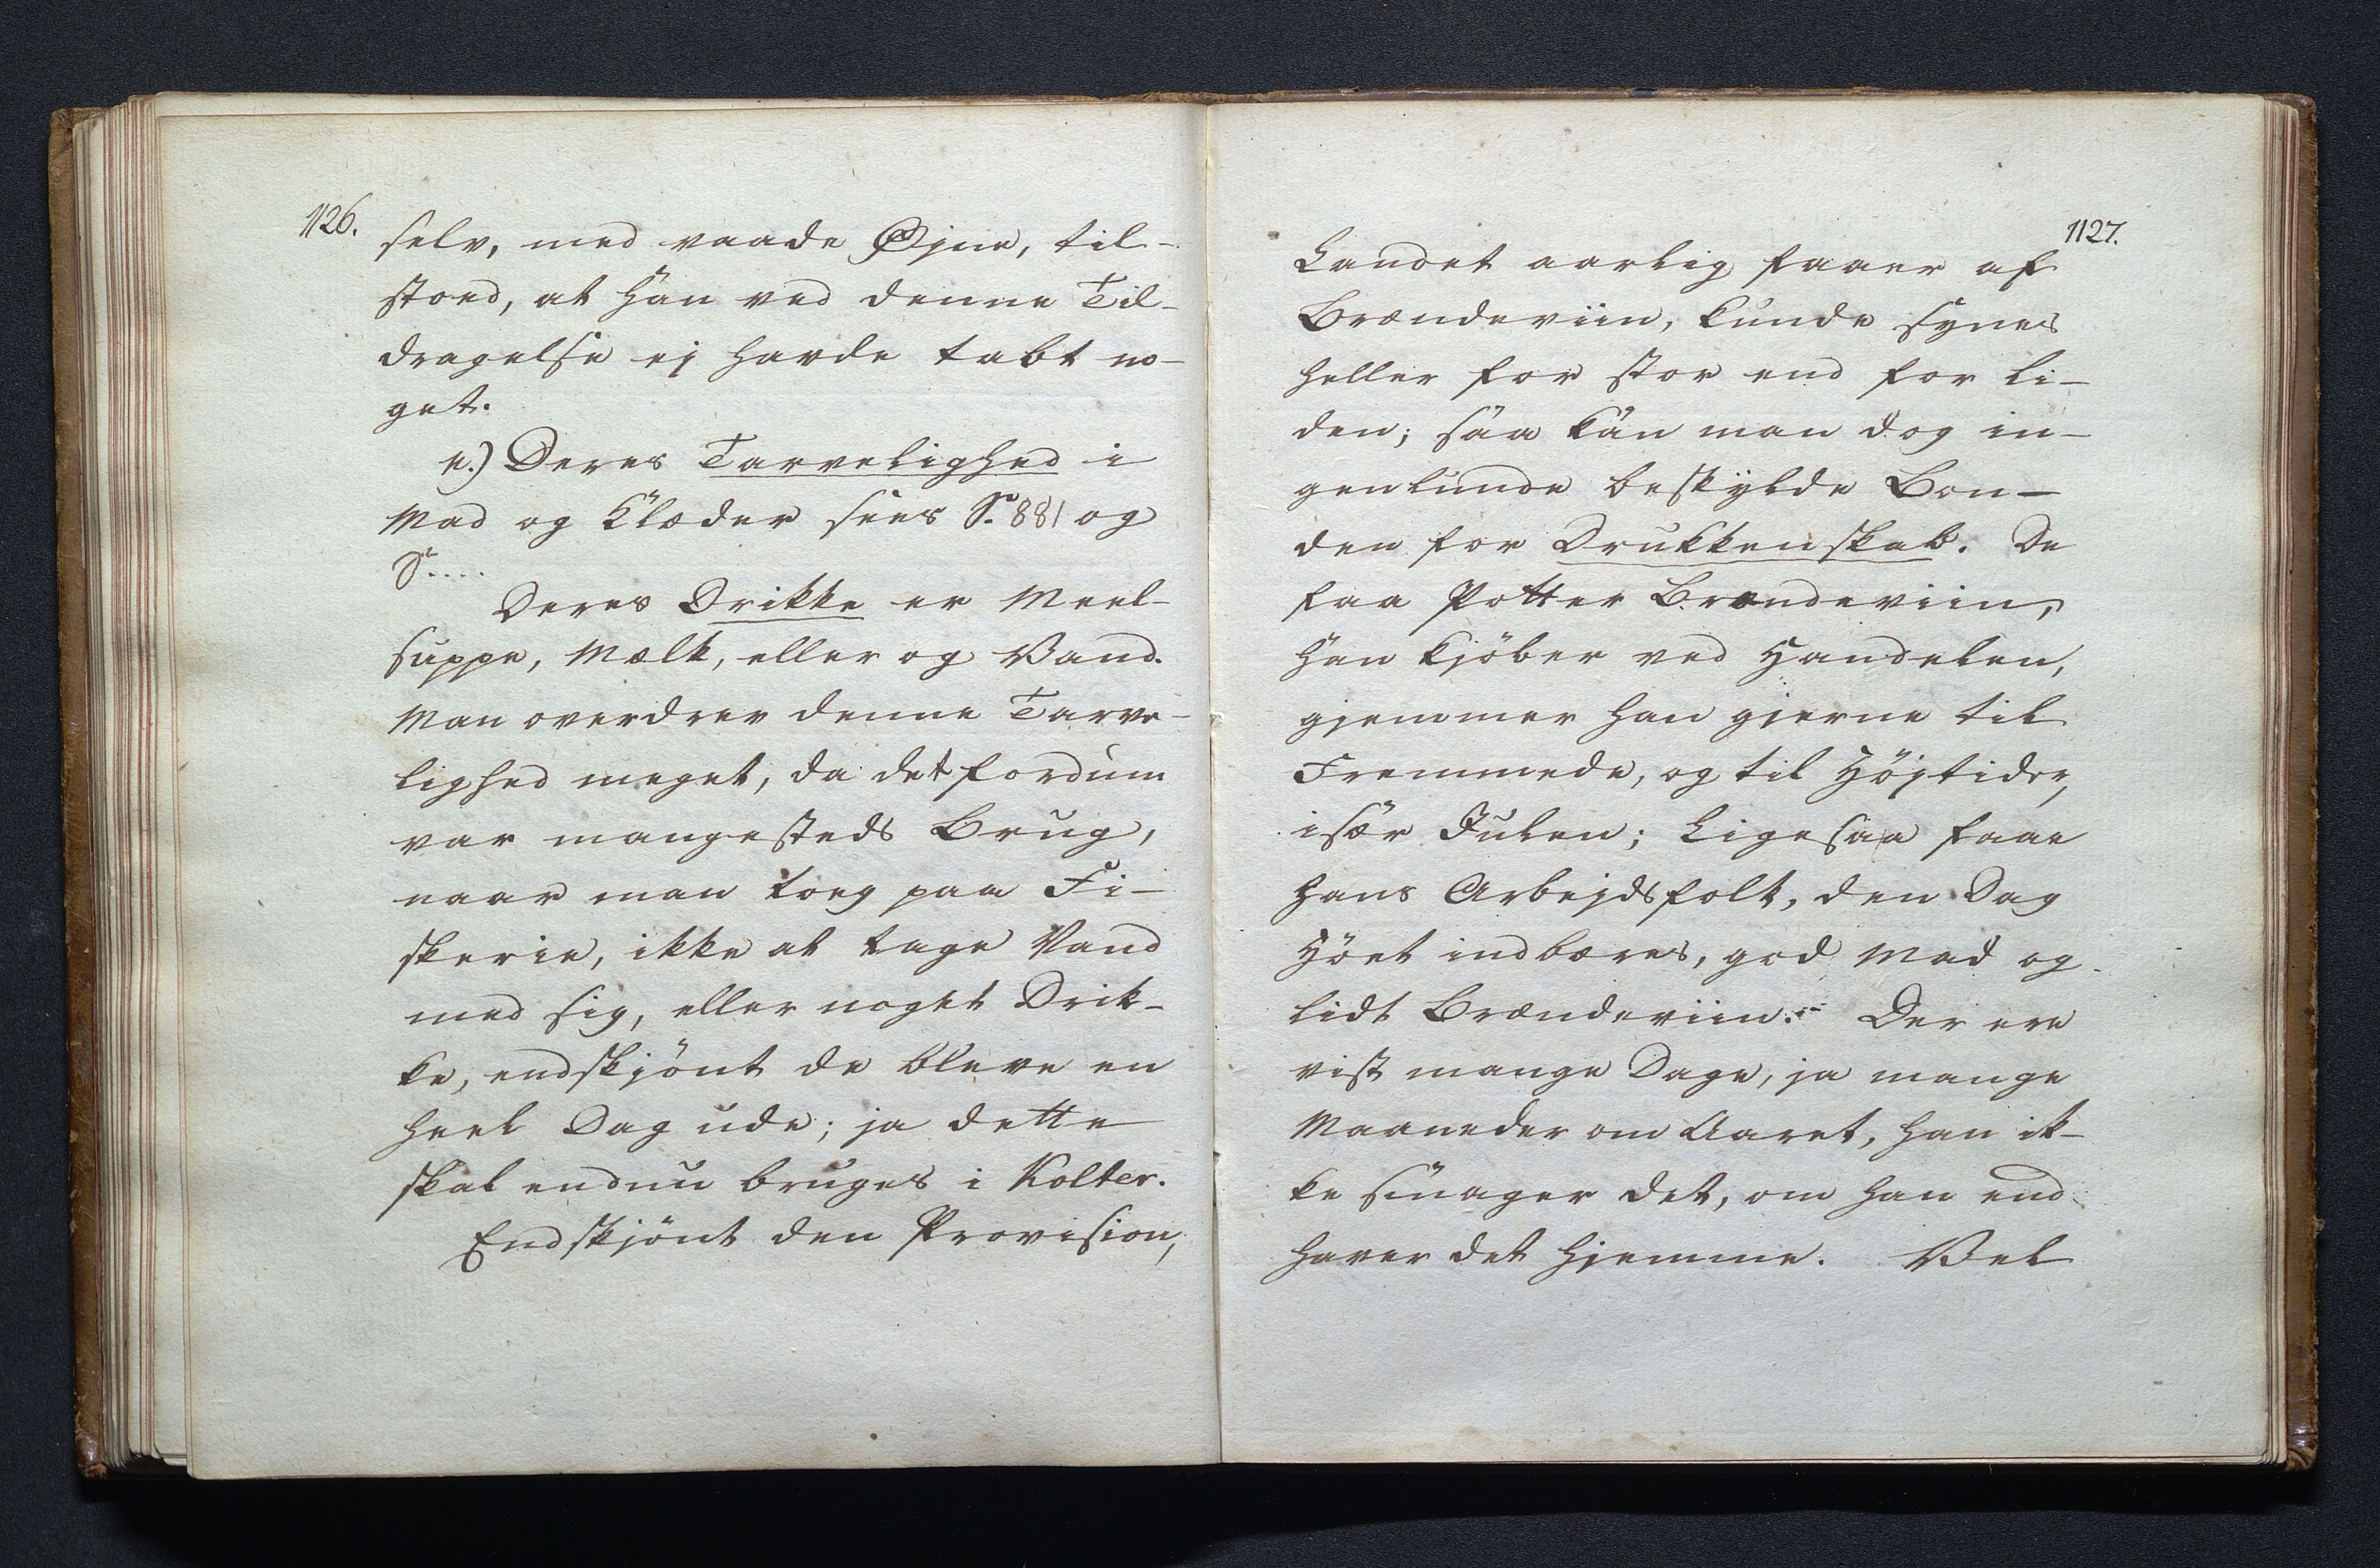 1126.
selv, med vaade Øjne, til-
stoed, at han ved denne Til-
dragelse ej havde tabt no-
get.
e.) Deres Tarvelighed i
Mad og Klæder sees S. 881 og
S....
Deres Drikke er Meel-
suppe, Mælk, eller og Vand.
Man overdrev denne Tarve-
lighed meget, da det fordum
var mangesteds Brug,
naar man roeg paa Fi-
skerie, ikke at tage Vand
med sig, eller noget Drik-
ke, endskjönt de bleve en
heel Dag ude; ja dette
skal endnu bruges i Kolter.
Endskjönt den Provision,
1127.
Landet aarlig faaer af
Brændeviin, kunde synes
heller for stor end for li-
den; saa kan man dog in-
genlunde beskylde Bon-
den for Drukkenskab. De
faa Potter Brændeviin,
han kjöber ved Handelen,
gjemmer han gjerne til
Fremmede, og til Höjtider,
især Julen; Ligesaa faae
hans Arbejdsfolk, den Dag
Höet indbæres, god Mad og
lidt Brændeviin. Der ere
vist mange Dage, ja mange
Maaneder om Aaret, han ik-
ke smager det, om han end
haver det hjemme. Vel